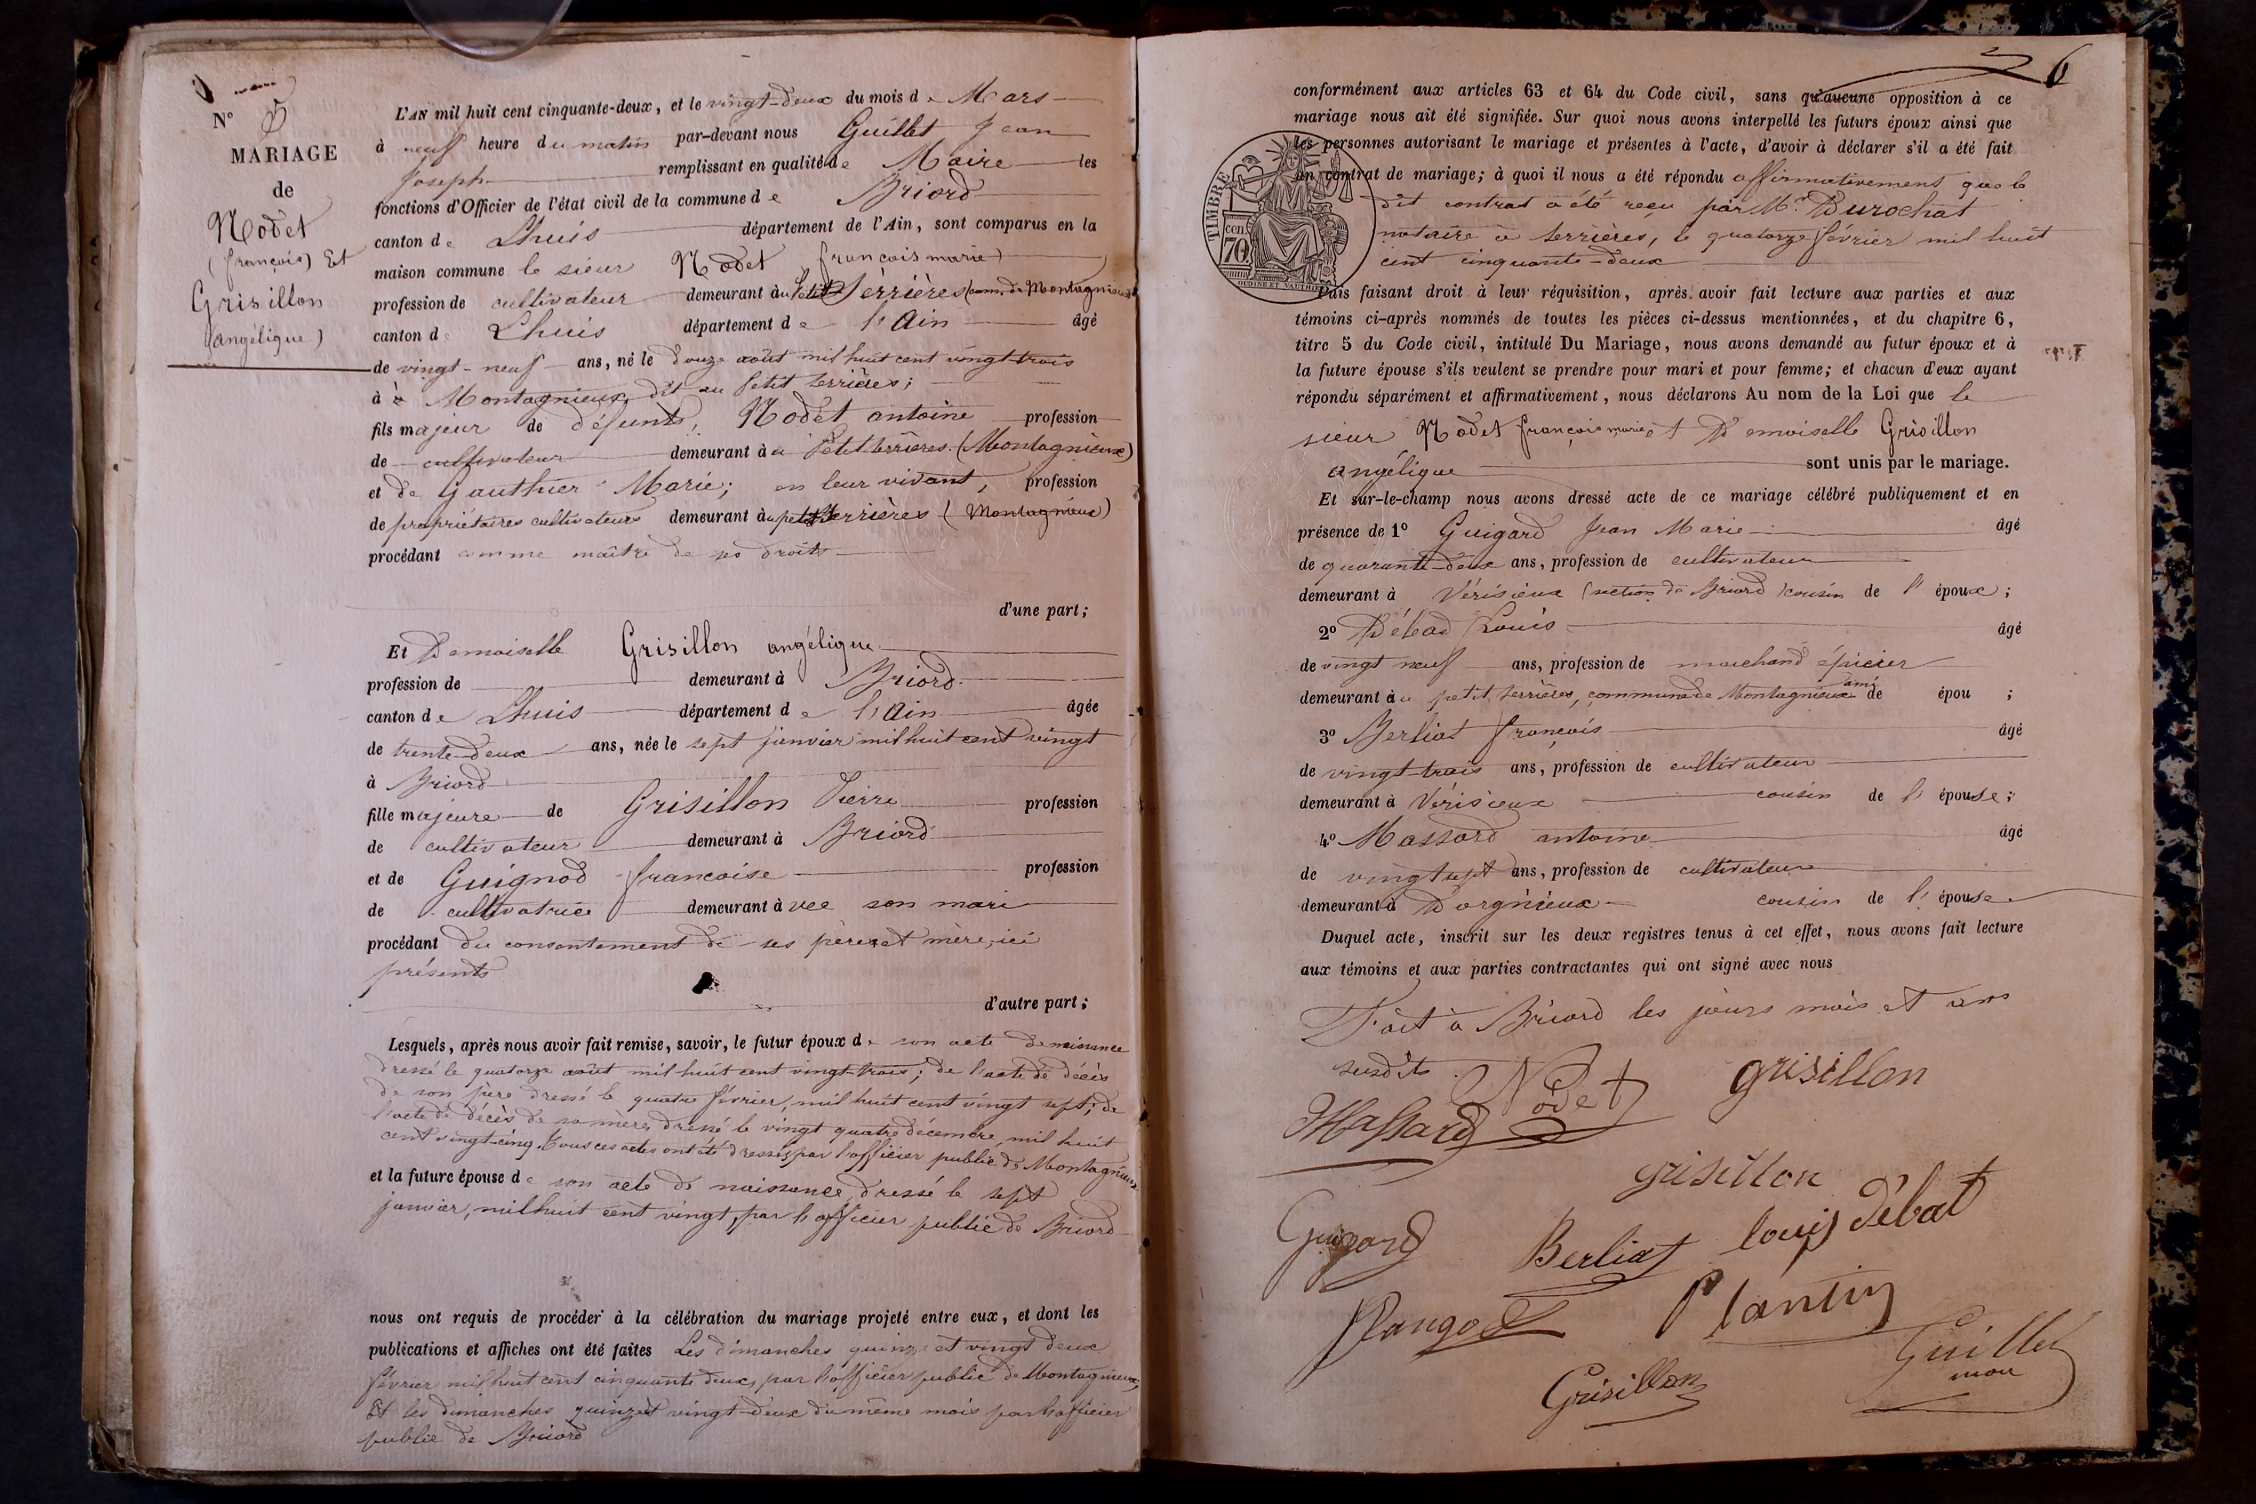 N° 5
MARIAGE
de
Nodet
(françois) Et
Grisillon
(angélique)
L'AN mil huit cent cinquante-deux, et le vingt-deux du mois de Mars
à neuf heure du matin par-devant nous Guillet Jean
Joseph remplissant en qualité de Maire les
fonctions d'Officier de l'état civil de la commune de Briord
canton de Lhuis département de l'Ain, sont comparus en la
maison commune le sieur Nodet françois marie
profession de cultivateur demeurant à au Petit Serrières (com. de Montagnieux)
canton de Lhuis département de l'Ain âgé
de vingt-neuf ans, né le douze août mil huit cent vingt-trois
à à Montagnieux dit au Petit Serrières;
fils majeur de défunts, Nodet antoine profession
de cultivateur demeurant à à Petit Serrières (Montagnieux)
et de Gauthier Marie; en leur vivant, profession
de propriétaires cultivateurs demeurant à au petit Serrières (Montagnieux)
procédant comme maître de ses droits
d'une part;
Et Demoiselle Grisillon angélique
profession de demeurant à Briord
canton de Lhuis département de l'Ain âgée
de trente-deux ans, née le sept janvier mil huit cent vingt
à Briord
fille majeure de Grisillon Pierre profession
de cultivateur demeurant à Briord
et de Guignod françoise profession
de cultivatrice demeurant à vec son mari
procédant du consentement de ses père et mère, ici
présents
d'autre part;
Lesquels, après nous avoir fait remise, savoir, le futur époux de son acte de naissance
dressé le quatorze août mil huit cent vingt-trois; de l'acte de décès
de son père dressé le quatre février, mil huit cent vingt sept; de
l'acte de décès de sa mère, dressé le vingt quatre décembre, mil huit
cent vingt-cinq. Tous ces actes ont été dressés par l'officier public de Montagnieux
et la future épouse de son acte de naissance, dressé le sept
janvier, mil huit cent vingt, par l'officier public de Briord
nous ont requis de procéder à la célébration du mariage projeté entre eux, et dont les
publications et affiches ont été faites Les dimanches quinze et vingt deux
février mil huit cent cinquante deux, par l'officier public de Montagnieux,
Et les dimanches quinze et vingt-deux du même mois par l'officier
public de Briord
6
conformément aux articles 63 et 64 du Code civil, sans qu'aucune opposition à ce
mariage nous ait été signifiée. Sur quoi nous avons interpellé les futurs époux ainsi que
les personnes autorisant le mariage et présentes à l'acte, d'avoir à déclarer s'il a été fait
un contrat de mariage; à quoi il nous a été répondu affirmativement que le
dit contrat a été reçu par Mr. Durochat
notaire à Serrières, le quatorze février mil huit
cent cinquante-deux
TIMBRE
70 cen.
OUDINE ET VAUTHIER
Puis faisant droit à leur réquisition, après avoir fait lecture aux parties et aux
témoins ci-après nommés de toutes les pièces ci-dessus mentionnées, et du chapitre 6,
titre 5 du Code civil, intitulé Du Mariage, nous avons demandé au futur époux et à
la future épouse s'ils veulent se prendre pour mari et pour femme; et chacun d'eux ayant
répondu séparément et affirmativement, nous déclarons Au nom de la Loi que le
sieur Nodet françois marie et Demoiselle Grisillon
angélique sont unis par le mariage.
Et sur-le-champ nous avons dressé acte de ce mariage célébré publiquement et en
présence de 1° Guigard Jean Marie âgé
de quarante-deux ans, profession de cultivateur
demeurant à Vérisieux (section de Briord) cousin de l'époux;
2° Débad Louis âgé
de vingt neuf ans, profession de marchand épicier
demeurant à au petit Serrières, commune de Montagnieux ami de épou ;
3° Berliat françois âgé
de vingt-trois ans, profession de cultivateur
demeurant à Vérisieux cousin de l'épouse;
4° Massard antoine âgé
de vingt sept ans, profession de cultivateur
demeurant à Dorgnieux cousin de l'épouse
Duquel acte, inscrit sur les deux registres tenus à cet effet, nous avons fait lecture
aux témoins et aux parties contractantes qui ont signé avec nous
Fait à Briord les jours mois et ans
susdits.
Nodet grisillon
Massard
grisillon
Guigard Berliat louis débat
Rangod Plantin
Grisillon Guillet
maire